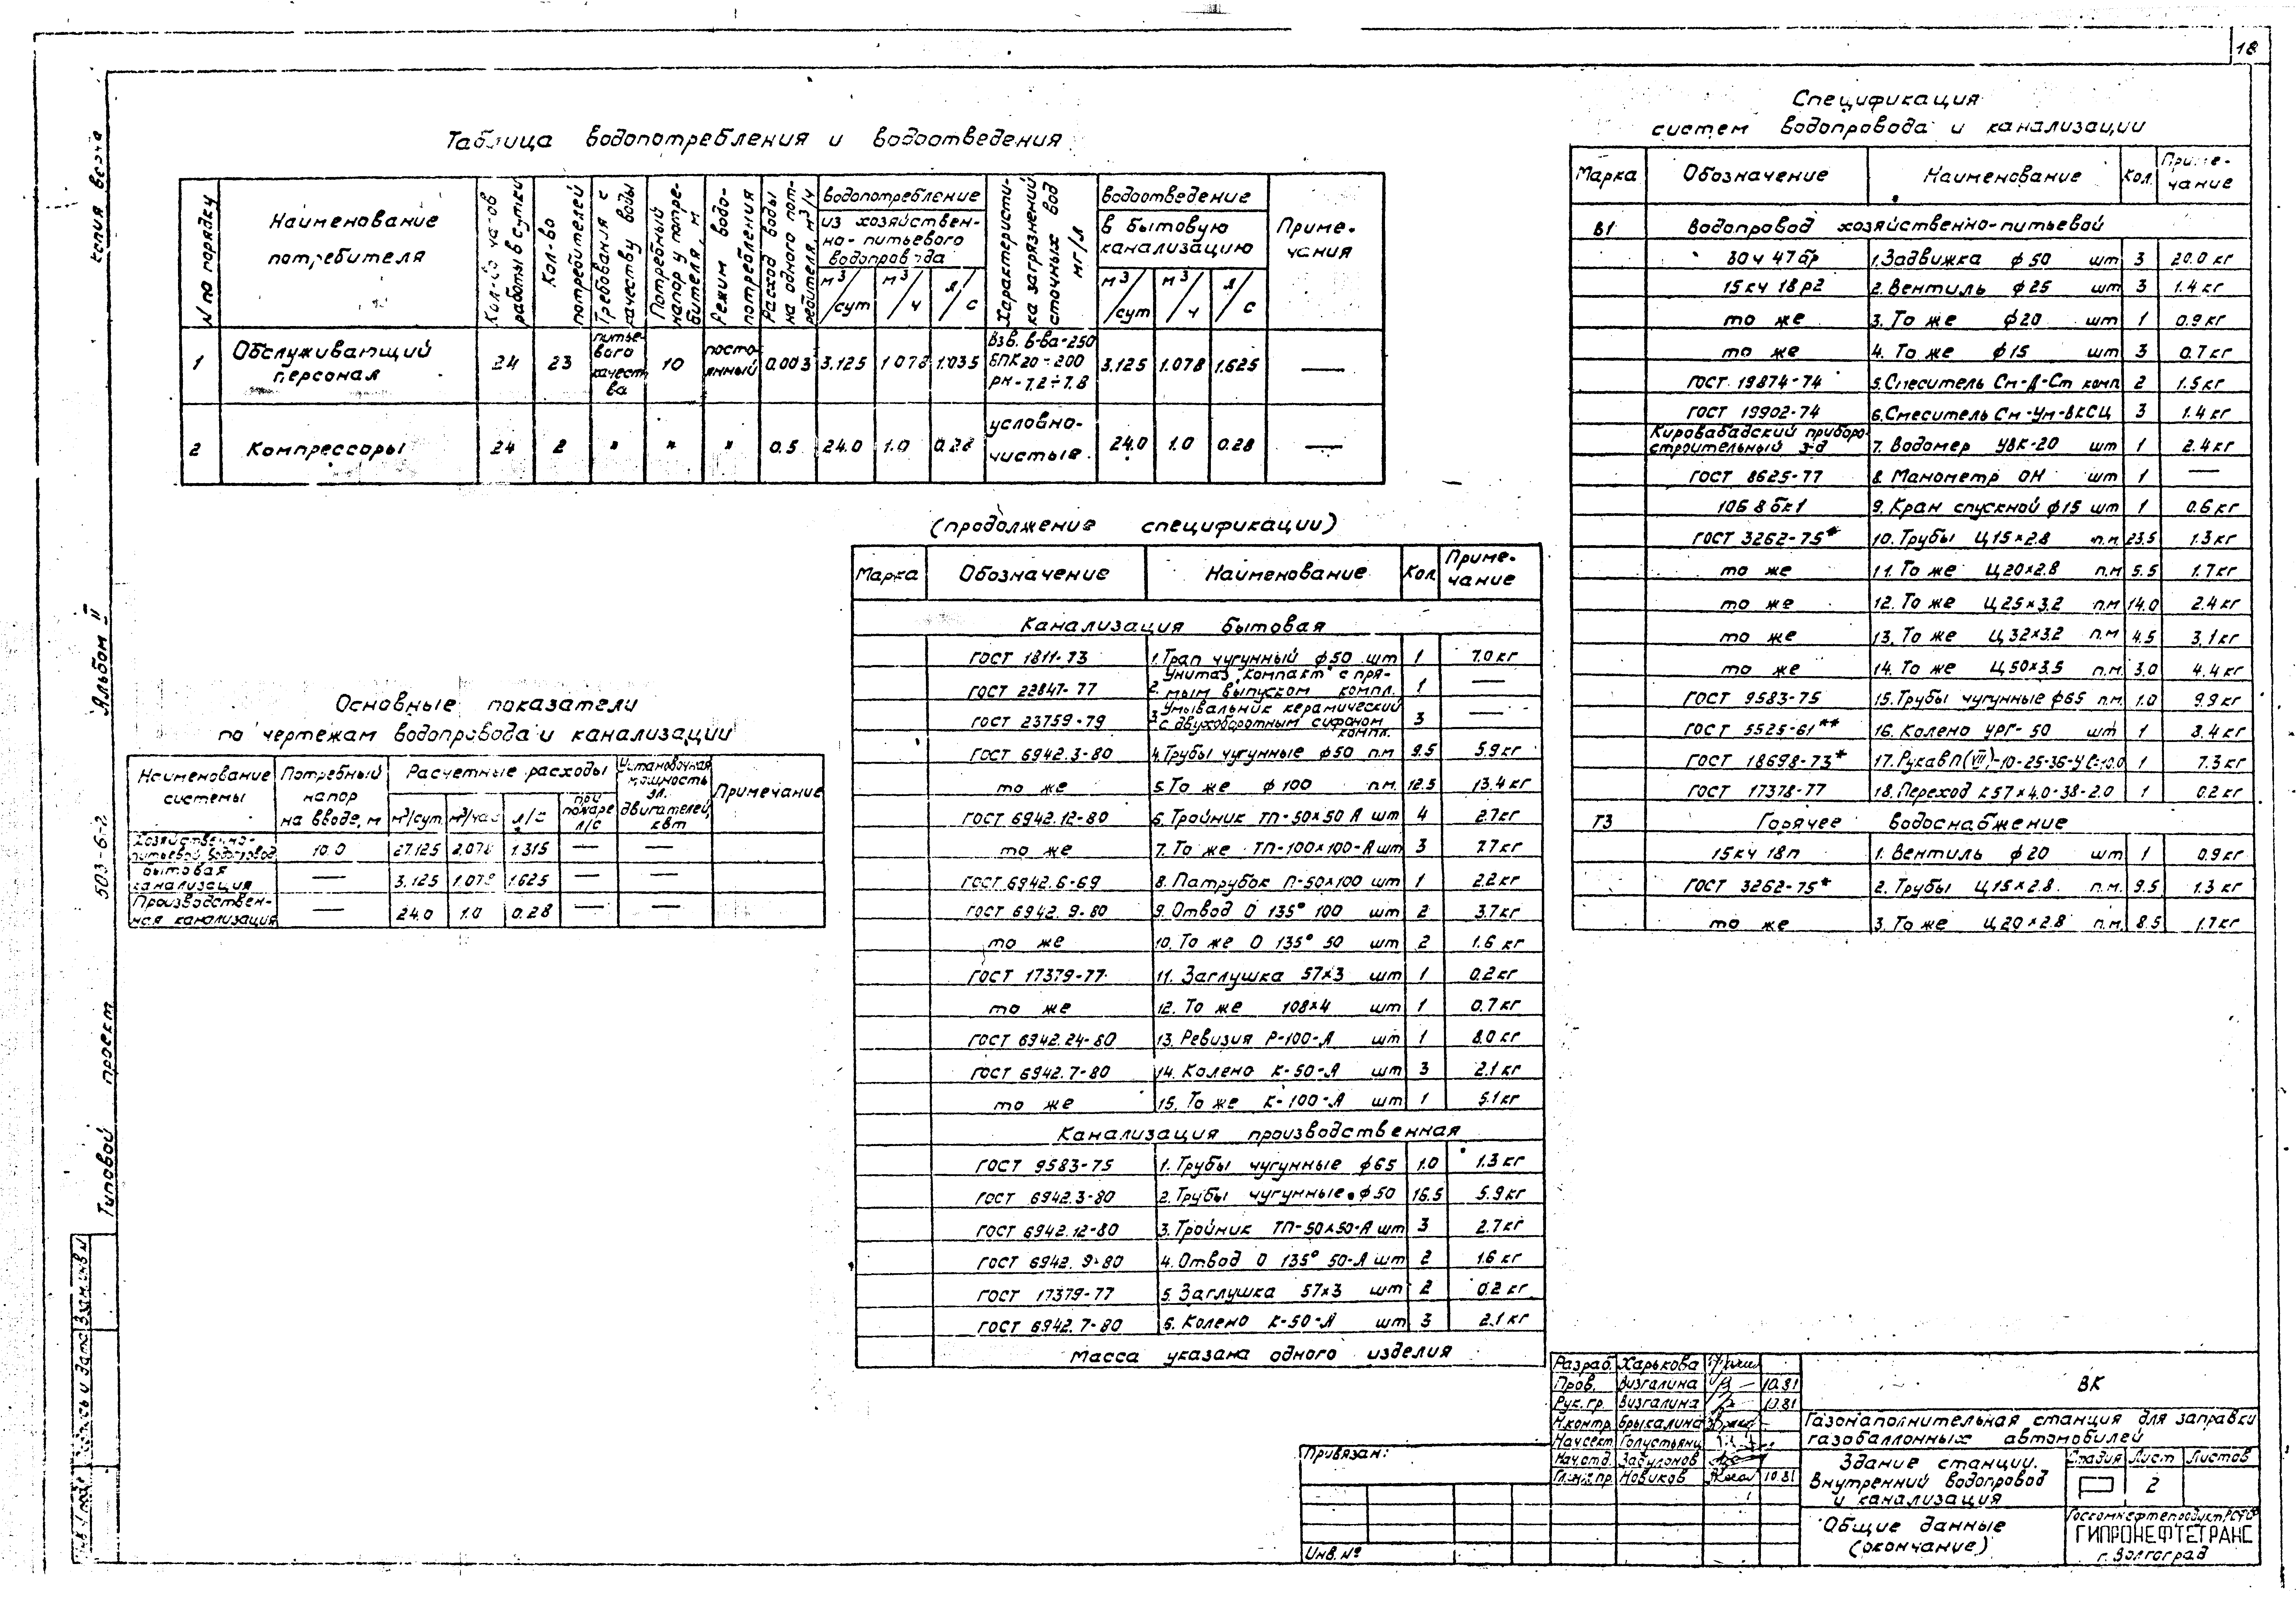 18
Таблица водопотребления и водоотведения
N по порядку
Наименование потребителя
Кол-во часов работы в сутки
Кол-во потребителей
Требования с качеству воды
Потребный напор у потребителя, м
Режим водопотребления
Расход воды на одного потребителя, м³/ч
водопотребление
из хозяйственно-питьевого водопровода
м³/сут
м³/ч
л/с
Характеристика загрязнений сточных вод мг/л
водоотведение
в бытовую канализацию
м³/сут
м³/ч
л/с
Примечания
1 Обслуживающий персонал 24 23 питьевого качества 10 постоянный 0.003 3.125 1.078 1.035 Взв. в-ва-250 БПК20÷200 PH-7.2÷7.8 3.125 1.078 1.625 —
2 Компрессоры 24 2 " " " 0.5 24.0 1.0 0.28 условно-чистые 24.0 1.0 0.28 —
Основные показатели
по чертежам водопровода и канализации
Наименование системы
Потребный напор на вводе, м
Расчетные расходы
м³/сут
м³/час
л/с
при пожаре л/с
Установочная мощность эл. двигателей, квт
Примечание
Хозяйственно-питьевой водопровод 10.0 27.125 2.078 1.315 — —
Бытовая канализация — 3.125 1.078 1.625 — —
Производственная канализация — 24.0 1.0 0.28 — —
(продолжение спецификации)
Марка Обозначение Наименование Кол. Примечание
Канализация бытовая
ГОСТ 1811-73 1. Трап чугунный ф50 шт 1 7.0 кг
ГОСТ 22847-77 2. Унитаз "Компакт" с прямым выпуском компл. 1 —
ГОСТ 23759-79 3. Умывальник керамический с двухоборотным сифоном компл. 3 —
ГОСТ 6942.3-80 4. Трубы чугунные ф50 п.м 9.5 5.9 кг
то же 5. То же ф100 п.м. 12.5 13.4 кг
ГОСТ 6942.12-80 6. Тройник ТП-50х50 А шт 4 2.7 кг
то же 7. То же ТП-100х100-А шт 3 7.7 кг
ГОСТ 6942.6-69 8. Патрубок П-50х100 шт 1 2.2 кг
ГОСТ 6942.9-80 9. Отвод О 135° 100 шт 2 3.7 кг
то же 10. То же О 135° 50 шт 2 1.6 кг
ГОСТ 17379-77 11. Заглушка 57х3 шт 1 0.2 кг
то же 12. То же 108х4 шт 1 0.7 кг
ГОСТ 6942.24-80 13. Ревизия Р-100-А шт 1 8.0 кг
ГОСТ 6942.7-80 14. Колено К-50-А шт 3 2.1 кг
то же 15. То же К-100-А шт 1 5.1 кг
Канализация производственная
ГОСТ 9583-75 1. Трубы чугунные ф65 1.0 1.3 кг
ГОСТ 6942.3-80 2. Трубы чугунные ф50 16.5 5.9 кг
ГОСТ 6942.12-80 3. Тройник ТП-50х50-А шт 3 2.7 кг
ГОСТ 6942.9-80 4. Отвод О 135° 50-А шт 2 1.6 кг
ГОСТ 17379-77 5. Заглушка 57х3 шт 2 0.2 кг
ГОСТ 6942.7-80 6. Колено К-50-А шт 3 2.1 кг
Масса указана одного изделия
Спецификация
систем водопровода и канализации
Марка Обозначение Наименование Кол. Примечание
В1 Водопровод хозяйственно-питьевой
30ч 47бр 1. Задвижка ф50 шт 3 20.0 кг
15кч 18р2 2. Вентиль ф25 шт 3 1.4 кг
то же 3. То же ф20 шт 1 0.9 кг
то же 4. То же ф15 шт 3 0.7 кг
ГОСТ 19874-74 5. Смеситель См-Д-Ст комп 2 1.5 кг
ГОСТ 19902-74 6. Смеситель См-Ум-ВКСЦ 3 1.4 кг
Кировабадский приборостроительный з-д 7. Водомер УВК-20 шт 1 2.4 кг
ГОСТ 8625-77 8. Манометр ОН шт 1 —
10Б 8бк1 9. Кран спускной ф15 шт 1 0.6 кг
ГОСТ 3262-75* 10. Трубы Ц15х2.8 п.м. 23.5 1.3 кг
то же 11. То же Ц20х2.8 п.м 5.5 1.7 кг
то же 12. То же Ц25х3.2 п.м 14.0 2.4 кг
то же 13. То же Ц32х3.2 п.м 4.5 3.1 кг
то же 14. То же Ц50х3.5 п.м. 3.0 4.4 кг
ГОСТ 9583-75 15. Трубы чугунные ф65 п.м. 1.0 9.9 кг
ГОСТ 5525-61** 16. Колено УРГ-50 шт 1 8.4 кг
ГОСТ 18698-73* 17. Рукав П(VII)-10-25-36-УС-10.0 1 7.3 кг
ГОСТ 17378-77 18. Переход К57х4.0-38-2.0 1 0.2 кг
Т3 Горячее водоснабжение
15кч 18п 1. Вентиль ф20 шт 1 0.9 кг
ГОСТ 3262-75* 2. Трубы Ц15х2.8. п.м. 9.5 1.3 кг
то же 3. То же Ц20х2.8 п.м. 8.5 1.7 кг
Разраб. Харькова
Пров. Визгалина 10.81
Рук. гр. Визгалина 10.81
Н.контр. Брыкалина
Нач.сект. Голустьянц
Нач.отд.
Новиков 10.81
Привязан:
Инв. №
ВК
Газонаполнительная станция для заправки
газобаллонных автомобилей
Здание станции.
Внутренний водопровод
и канализация
Стадия Лист Листов
2
Общие данные
(окончание)
Госкомнефтепродукт РСФСР
ГИПРОНЕФТЕТРАНС
г. Волгоград
Типовой проект 503-6-2 Альбом II
копия верна
Подпись и дата Взам. инв N